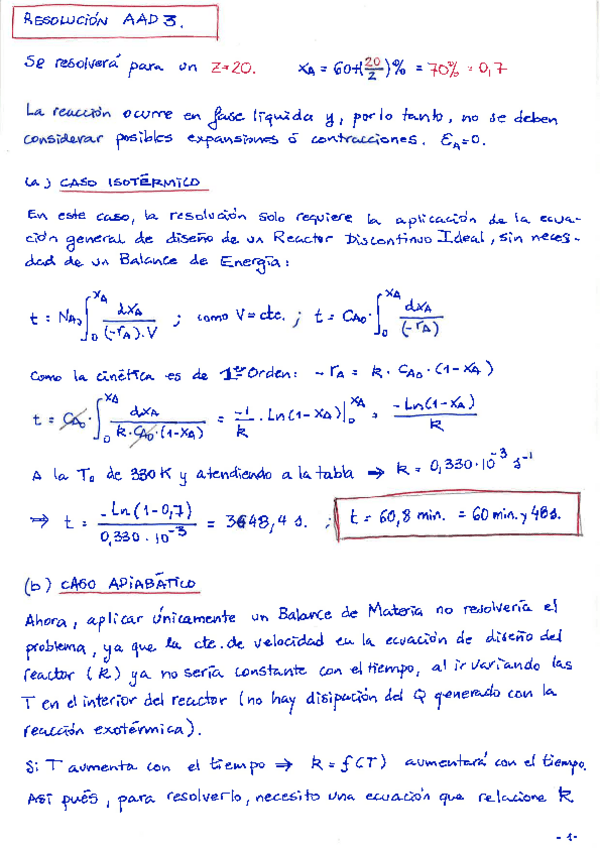 RESOLUCIÓN AAD 3.
Se resolverá para un Z=20. XA = 60+(20/Z)% = 70% = 0,7
La reacción ocurre en fase líquida y, por lo tanto, no se deben
considerar posibles expansiones ó contracciones. εA=0.
(a) CASO ISOTÉRMICO
En este caso, la resolución solo requiere la aplicación de la ecua-
ción general de diseño de un Reactor Discontinuo Ideal, sin neces-
dad de un Balance de Energía:
t = NA0 ∫0^XA dXA/((-rA).V) ; como V=cte. ; t = CA0·∫0^XA dXA/(-rA)
Como la cinética es de 1er Orden: -rA = k·CA0·(1-XA)
t = CA0·∫0^XA dXA/(k·CA0·(1-XA)) = -1/k · Ln(1-XA)|0^XA = -Ln(1-XA)/k
A la To de 330K y atendiendo a la tabla ⇒ k = 0,330·10^-3 s^-1
⇒ t = -Ln(1-0,7)/(0,330·10^-3) = 3648,4 s. ; t = 60,8 min. = 60 min. y 48s.
(b) CASO ADIABÁTICO
Ahora, aplicar únicamente un Balance de Materia no resolvería el
problema, ya que la cte. de velocidad en la ecuación de diseño del
reactor (k) ya no sería constante con el tiempo, al ir variando las
T en el interior del reactor (no hay disipación del Q generado con la
reacción exotérmica).
Si T aumenta con el tiempo ⇒ k = f(T) aumentará con el tiempo.
Así pués, para resolverlo, necesito una ecuación que relacione k
-1-